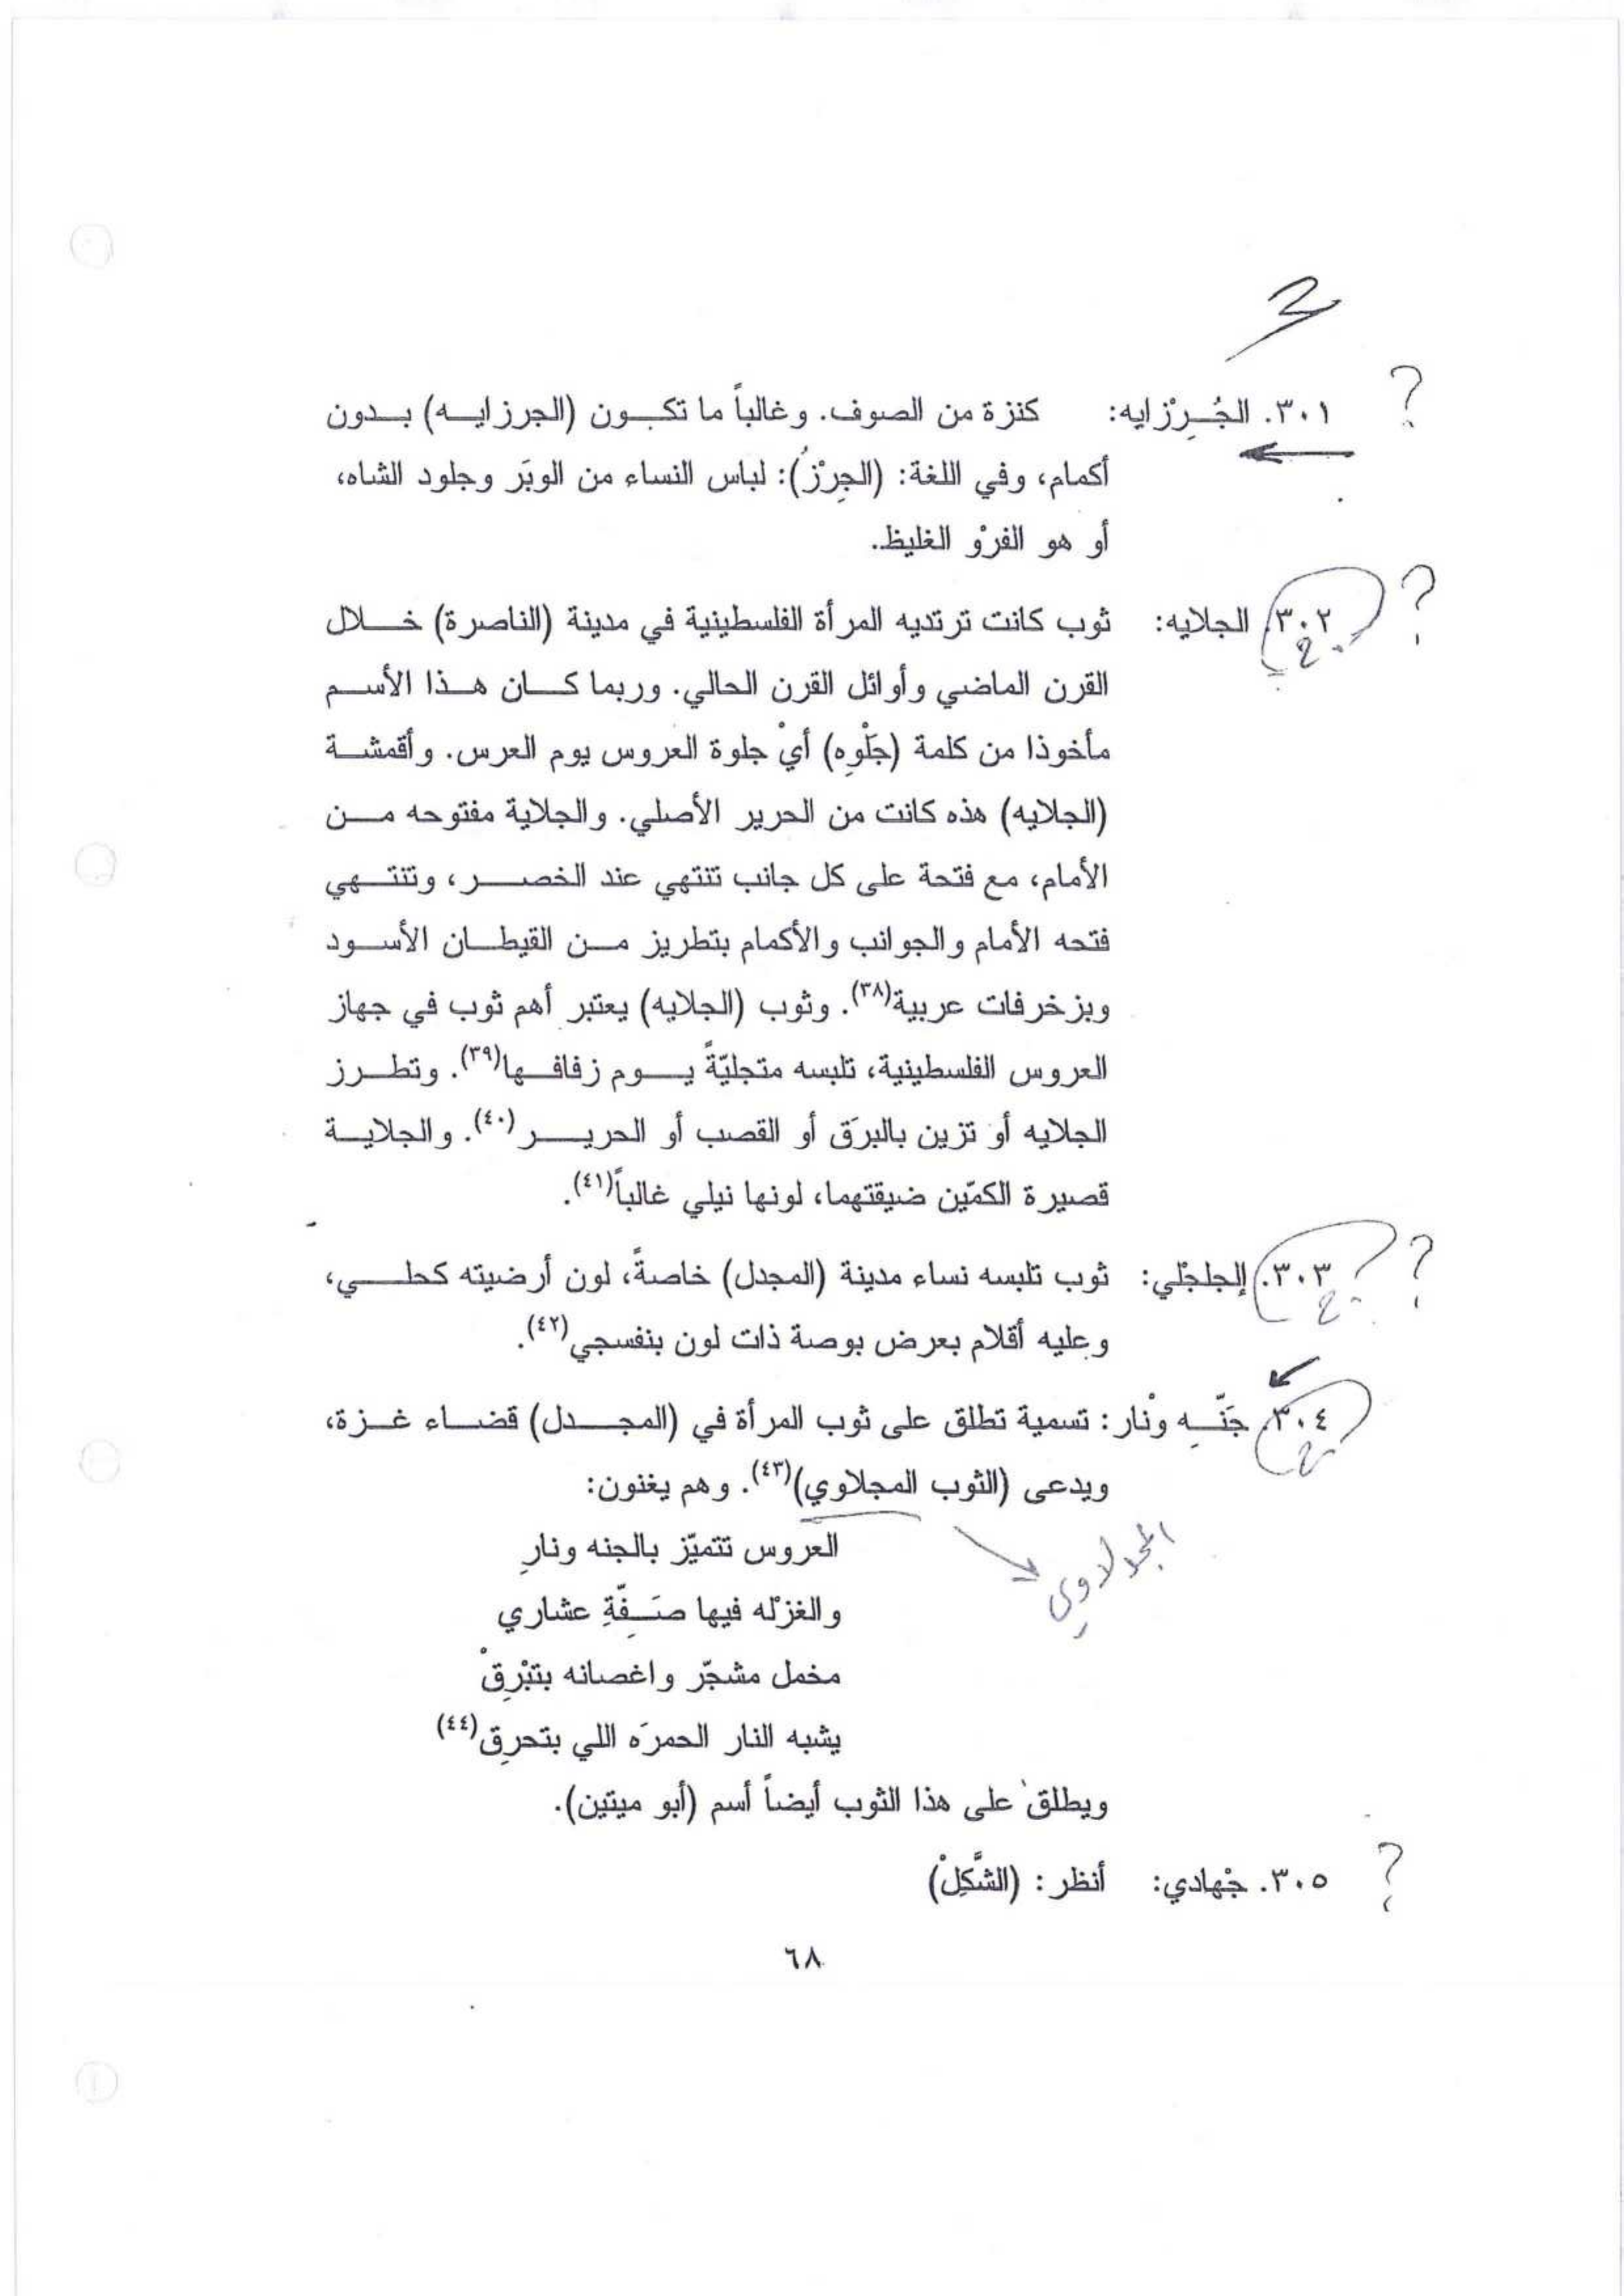 ٣٠١. الجُرِرْزايه: كنزة من الصوف. وغالباً ما تكون (الجرزايه) بدون
أكمام، وفي اللغة: (الجِرْزُ): لباس النساء من الوبَر وجلود الشاه،
أو هو الفرْو الغليظ.
٣٠٢. الجلايه: ثوب كانت ترتديه المرأة الفلسطينية في مدينة (الناصرة) خلال
القرن الماضي وأوائل القرن الحالي. وربما كان هذا الأسم
مأخوذا من كلمة (جَلْوِه) أيْ جلوة العروس يوم العرس. وأقمشة
(الجلايه) هذه كانت من الحرير الأصلي. والجلاية مفتوحه من
الأمام، مع فتحة على كل جانب تنتهي عند الخصر، وتنتهي
فتحه الأمام والجوانب والأكمام بتطريز من القيطان الأسود
وبزخرفات عربية(٣٨). وثوب (الجلايه) يعتبر أهم ثوب في جهاز
العروس الفلسطينية، تلبسه متجليّةً يوم زفافها(٣٩). وتطرز
الجلايه أو تزين بالبرَق أو القصب أو الحرير(٤٠). والجلاية
قصيرة الكمّين ضيقتهما، لونها نيلي غالباً(٤١).
٣٠٣. إلجلجْلي: ثوب تلبسه نساء مدينة (المجدل) خاصةً، لون أرضيته كحلي،
وعليه أقلام بعرض بوصة ذات لون بنفسجي(٤٢).
٣٠٤. جَنّـِه ونْار: تسمية تطلق على ثوب المرأة في (المجدل) قضاء غزة،
ويدعى (الثوب المجلاوي)(٤٣). وهم يغنون:
المجدلاوي
العروس تتميّز بالجنه ونارِ
والغزلْه فيها صَنِفّةِ عشاري
مخمل مشجّر واغصانه بتبْرِقْ
يشبه النار الحمرَه اللي بتحرِق(٤٤)
ويطلق على هذا الثوب أيضاً أسم (أبو ميتين).
٣٠٥. جْهادي: أنظر: (الشَّكِلْ)
٦٨